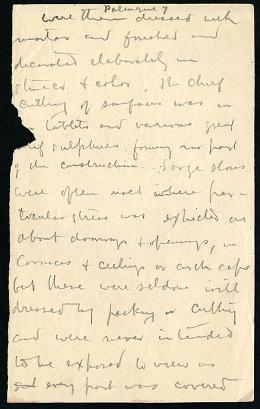 Palenque 7
were then dressed with
mortar and finished and
decorated elaborately in
stucco & color. The chief
cutting of surfaces was in
tablets and various great
sculptures, forming no part
of the construction. Large stones
were often used where par-
ticular stress was expected as
about doorways & openings, in
Cornices & ceilings or arch caps
but these were seldom well
dressed by pecking or cutting
and were never intended
to be exposed to view as
every part was covered